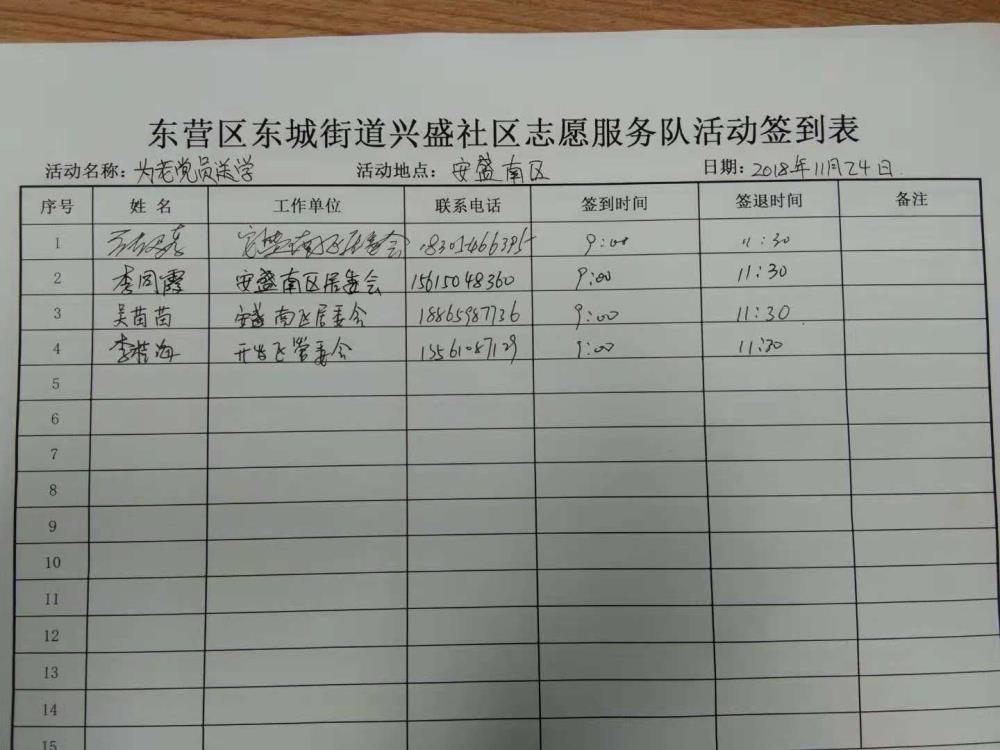 东营区东城街道兴盛社区志愿服务队活动签到表
活动名称：为老党员送学 活动地点：安盛南区 日期：2018年11月24日
序号 姓名 工作单位 联系电话 签到时间 签退时间 备注
1 安盛南区居委会 9:00 11:30
2 李同霞 安盛南区居委会 15615048360 9:00 11:30
3 吴苗苗 安盛南区居委会 18865987736 9:00 11:30
4 李浩海 开发区管委会 9:00 11:30
5
6
7
8
9
10
11
12
13
14
15